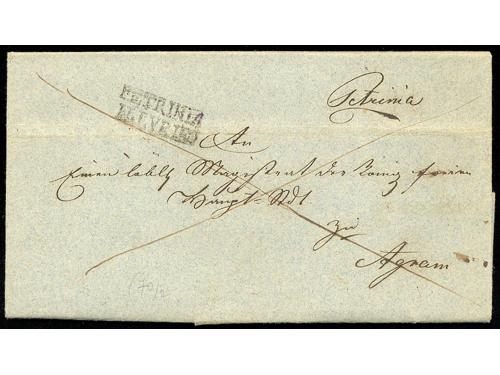 PETRINIA
Petrinia
An
Einen löbl. Magistrat der König freien
Haupt-Stdt
zu
Agram